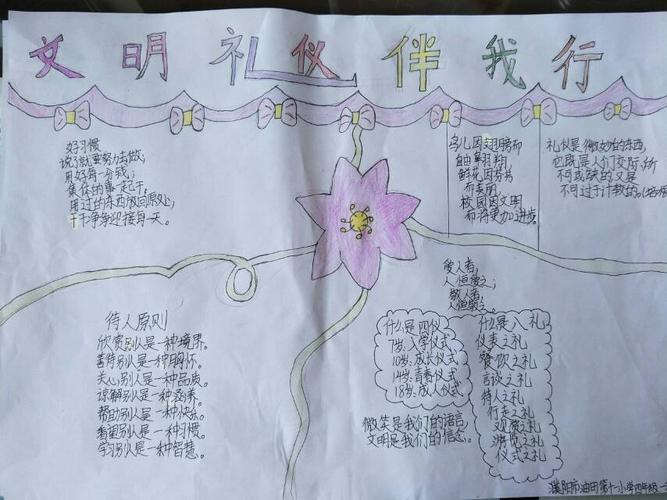 文明礼仪伴我行
好习惯
说了就要努力去做;
用好每一分钱;
集体的事一起干;
用过的东西放回原处;
干干净净迎接每一天。
鸟儿因翅膀而
自由翱翔,
鲜花因芬芳
而美丽,
校园因文明
而将更加进步。
礼仪是微妙的东西,
它既是人们交际所
不可或缺的又是
不可过于计较的。
爱人者,
人恒爱之;
敬人者,
人恒敬之。
待人原则
欣赏别人是一种境界。
善待别人是一种胸怀。
关心别人是一种品质。
谅解别人是一种涵养。
帮助别人是一种快乐。
看望别人是一种习惯。
学习别人是一种智慧。
什么是四仪
7岁:入学仪式
10岁:成长仪式
14岁:青春仪式
18岁:成人仪式
微笑是我们的语言,
文明是我们的信念。
什么是八礼
仪表之礼
餐饮之礼
言谈之礼
待人之礼
行走之礼
观赏之礼
游览之礼
仪式之礼
濮阳市油田第十一小学四年级